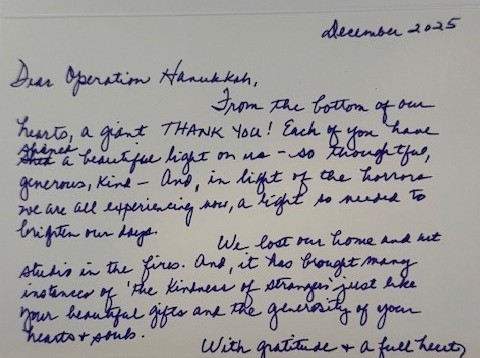 December 2025
Dear Operation Hanukkah,
From the bottom of our
hearts, a giant THANK YOU! Each of you have
shined
a beautiful light on us - so thoughtful,
generous, kind - And, in light of the horrors
we are all experiencing now, a light so needed to
brighten our days.
We lost our home and art
studio in the fires. And, it has brought many
instances of 'the kindness of strangers' just like
your beautiful gifts and the generosity of your
hearts & souls.
With gratitude & a full heart,